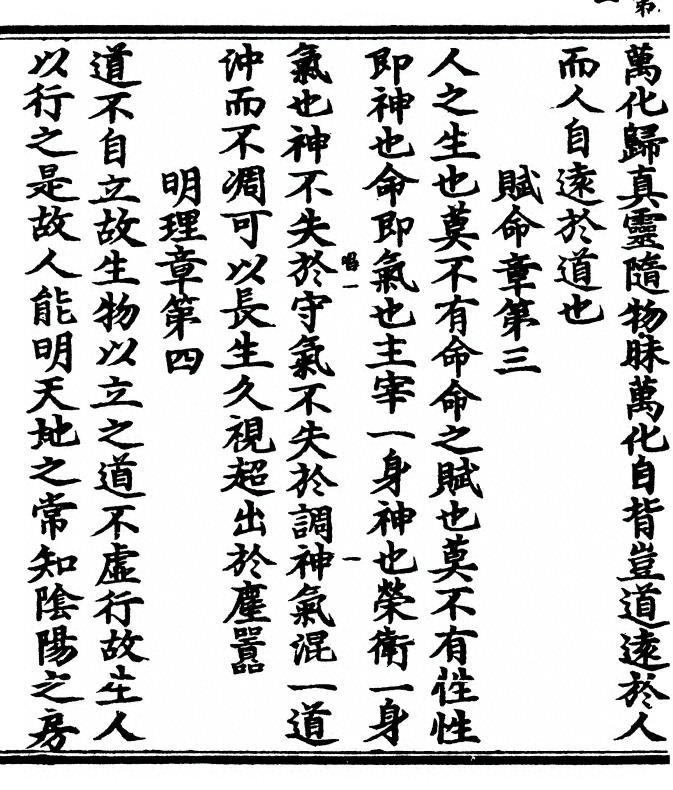 萬化歸真靈隨物昧萬化自背豈道遠於人
而人自遠於道也
賦命章第三
人之生也莫不有命命之賦也莫不有性性
即神也命即氣也主宰一身神也榮衛一身
氣也神不失於守氣不失於調神氣混一道
沖而不凋可以長生久視超出於塵囂
明理章第四
道不自立故生物以立之道不虛行故生人
以行之是故人能明天地之常知陰陽之房